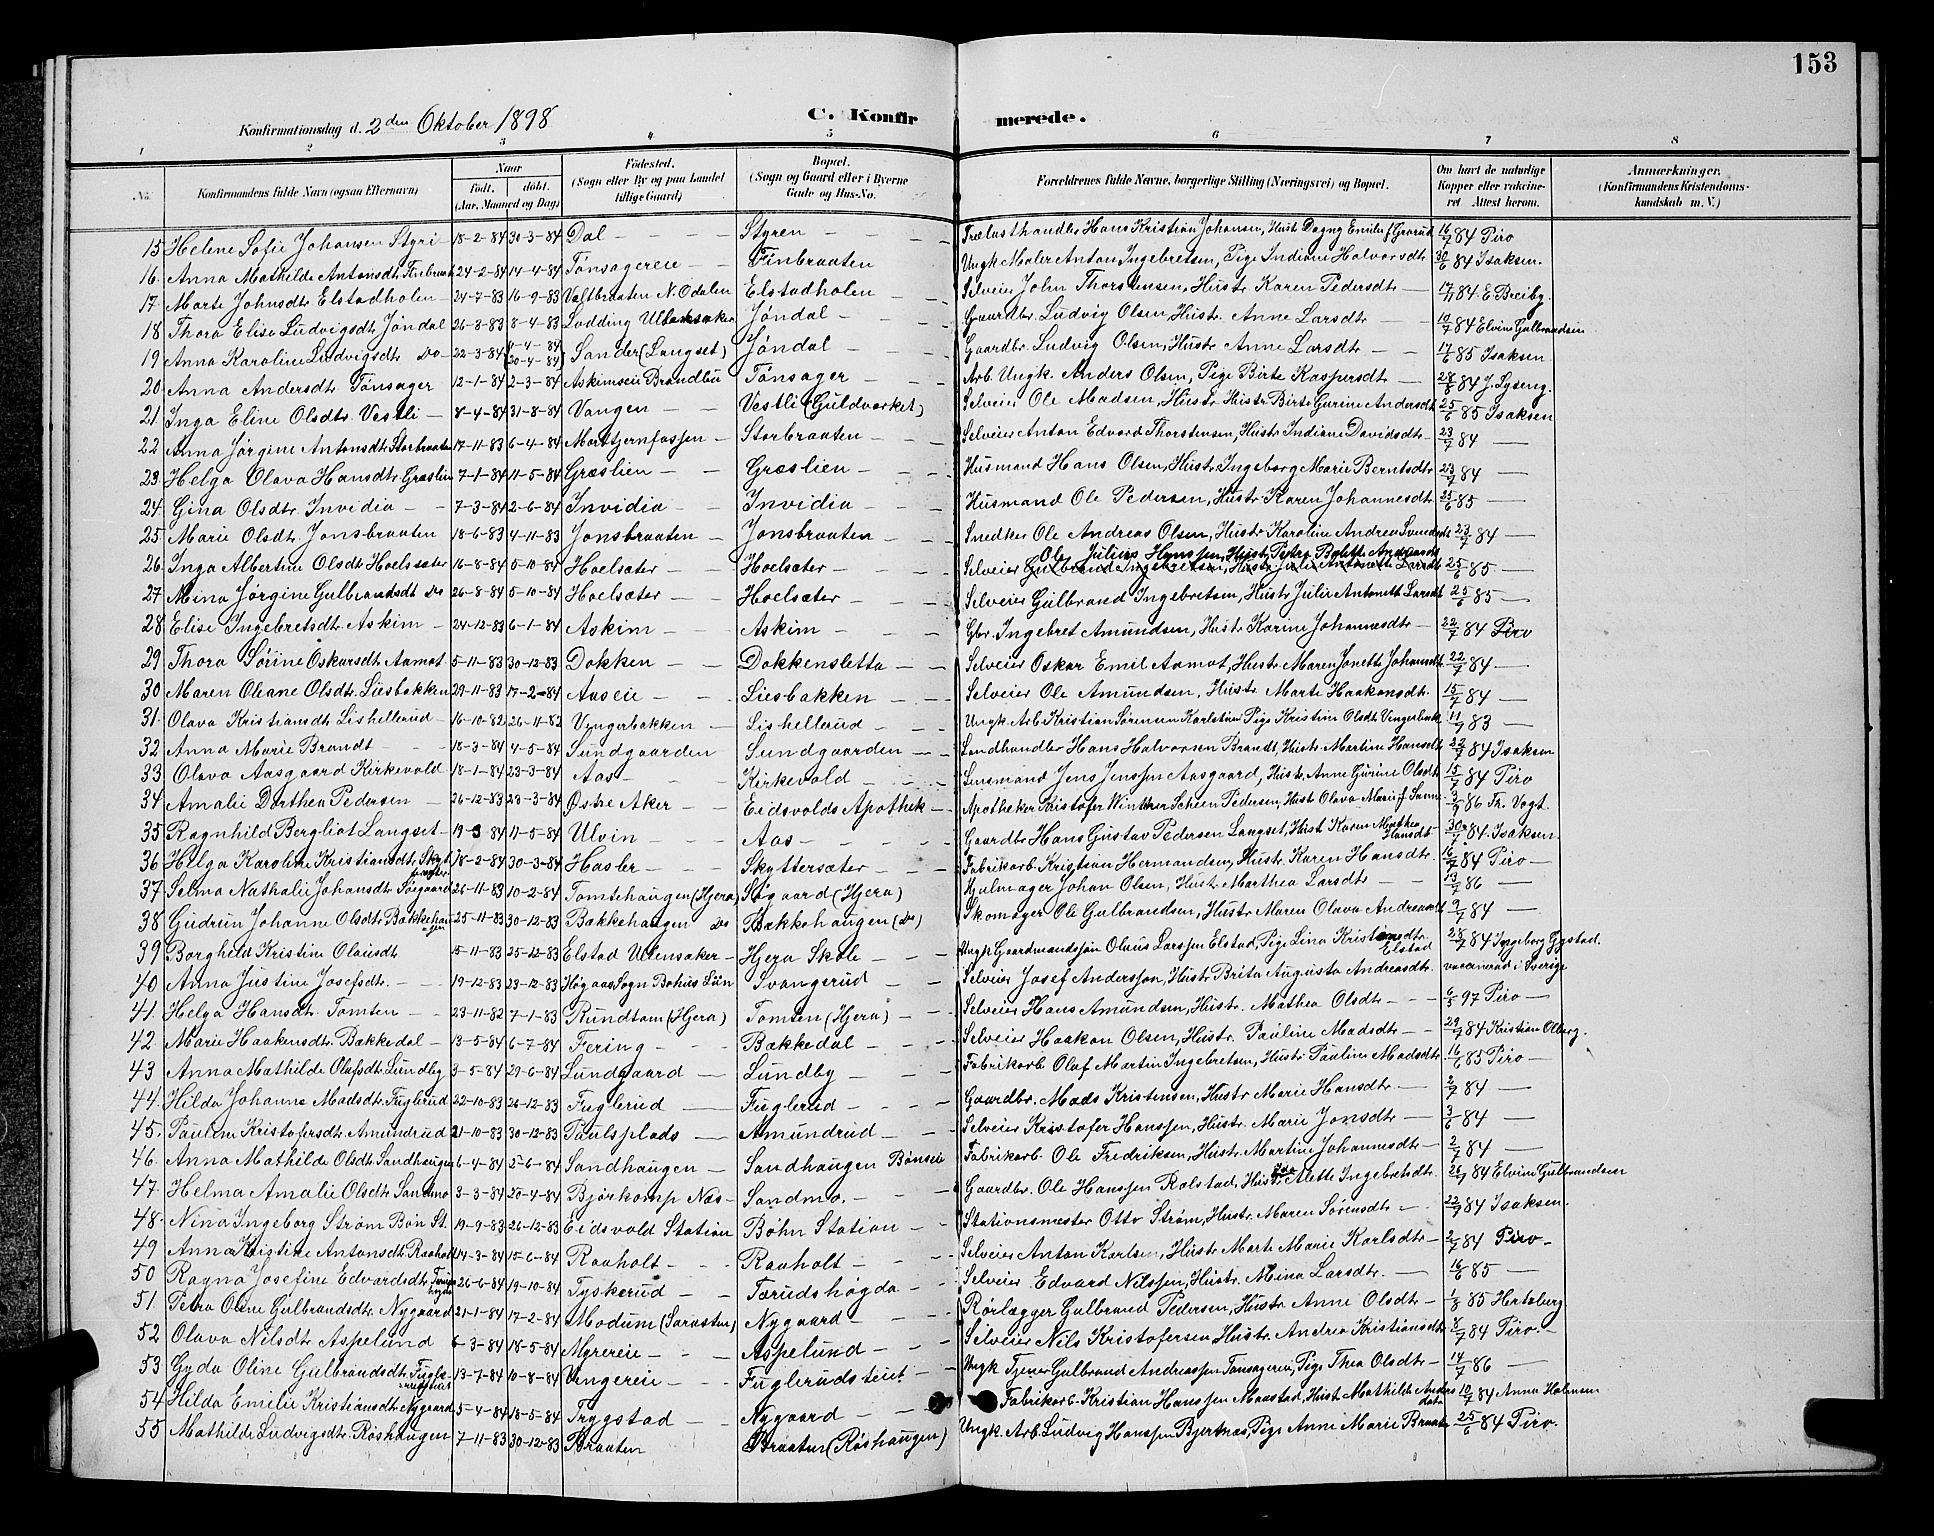 153
Konfirmationsdag d. 2den Oktober 1898
C. Konfirmerede.
1 2 3 4 5 6 7 8
No. Konfirmandens fulde Navn (ogsaa Efternavn) Naar født, døbt. (Aar, Maaned og Dag) Fødested. (Sogn eller By og paa Landet tillige Gaard) Bopæl. (Sogn og Gaard eller i Byerne Gade og Hus-No. Forældrenes fulde Navne, borgerlige Stilling (Næringsvei) og Bopæl. Om havt de naturlige Kopper eller vakcineret Attest herom. Anmærkninger. (Konfirmandens Kristendomskundskab m. V.)
15 Helene Sofie Johansen Styri 18-2-84 30-3-84 Dal Styren Trælasthandler Hans Kristian Johansen, Hust. Dagny Emilie f. Grorud 16/7 84 Piro
16 Anna Mathilde Antonsdt. Finbraat 24-2-84 14-4-84 Tønsagereie Finbraaten Ungk. Maler Anton Ingebretsen, Pige Indiane Halvorsdt 30/6 84 Isaksen.
17 Marte Johnsdt. Elstadholen 24-7-83 16-9-83 Valtbraaten N. Odalen Elstadholen Selveier John Thorstensen, Hustr. Karen Pedersdt 17/11 84 E Breiby.
18 Thora Elise Ludvigsdt. Jøndal 26-3-83 8-4-83 Lodding Ullensaker Jøndal Gaardbr. Ludvig Olsen, Hustr. Anne Larsdtr 10/7 84 Elvine Gulbrandsen
19 Anna Karoline Ludvigsdt. Do 22-3-84 20-4-84 Sander (Langset) Jøndal Gaardbr. Ludvig Olsen, Hustr. Anne Larsdtr 17/6 85 Isaksen
20 Anna Andersdt. Tønsager 12-1-84 2-3-84 Askimseie Brandbu Tønsager Arb. Ungk. Anders Olsen, Pige Birte Kaspersdt 28/8 84 J. Lyseng.
21 Inga Eline Olsdtr. Vestli 8-4-84 31-8-84 Vangen Vestli (Guldverket) Selveier Ole Madsen, Hustr. Hustr. Birte Gurine Andersdt 25/6 85 Isaksen
22 Anna Jørgine Antonsdt. Storbraaten 17-11-83 6-4-84 Mortjernfossen Storbraaten Selveier Anton Edvard Thorstensen, Hustr. Indiane Davidsdtr 23/7 84
23 Helga Olava Hansdt. Græslien 7-1-84 11-5-84 Græslien Græslien Husmand Hans Olsen, Hustr. Ingeborg Marie Berntsdtr 23/7 84
24 Gina Olsdtr. Invidia 7-3-84 2-6-84 Invidia Invidia Husmand Ole Pedersen, Hustr. Karen Johannesdt 25/6 85
25 Marie Olsdt. Jonsbraaten 18-6-83 4-11-83 Jonsbraaten Jonsbraaten Snedker Ole Andreas Olsen, Hustr. Karoline Andrea Svendsdt 23/7 84
26 Inga Albertine Olsdt. Hoelsæter 16-8-84 5-10-84 Hoelsæter Hoelsæter Selveier Ole Julius Hanssen, Hustr. Petra Bolette Andersdt Gulbrand Ingebretsen, Hustr. Julie Antonette Larsdt 25/6 85
27 Mina Jørgine Gulbrandsdt Do 26-8-84 5-10-84 Hoelsæter Hoelsæter Selveier Gulbrand Ingebretsen, Hustr. Julie Antonette Larsdt 25/6 85
28 Elise Ingebretsdt. Askim 24-12-83 6-1-84 Askim Askim Gbr. Ingebret Amundsen, Hustr. Karine Johannesdt 22/7 84 Piro
29 Thora Sørine Oskarsdt. Aamot 5-11-83 30-12-83 Dokken Dokkensletta Selveier Oskar Emil Aamot, Hustr. Maren Jonette Johansdt 22/7 84
30 Maren Oliane Olsdt. Liesbakken 29-11-83 17-2-84 Aaseie Liesbakken Selveier Ole Amundsen, Hustr. Marte Haakonsdt. 15/7 84
31 Olava Kristiansdt. Lishellerud 16-10-82 26-11-82 Vyngerbakken Lishellerud Ungk. Arb. Kristian Sørensen Karlstien, Pige Kristine Olsdt. Vingerbak 11/9 83
32 Anna Marie Brandt 18-3-84 4-5-84 Sundgaarden Sundgaarden Landhandler Hans Halvorsen Brandt, Hustr. Martine Hansdt 22/7 84 Isaksen
33 Olava Aasgaard Kirkevold 18-1-84 23-3-84 Aas Kirkevold Lensmand Jens Jenssen Aasgaard, Hustr. Anne Gurine Olsdt 15/7 84 Piro
34 Amalie Dorthea Pedersen 26-12-83 23-3-84 Østre Aker Eidsvolds Apothek Apotheker Kristofer Winther Scheen Pedersen, Hustr. Olava Marie f. 3/9 86 Fr. Vogt.
35 Ragnhild Bergliot Langset 19-3-84 11-5-84 Ulvin Aas Gaardbr. Hans Gustav Pedersen Langset, Hust. Karen Mathea Hansdt 30/7 84. Isaksen
36 Helga Karoline Kristiansdt. Skyttersæter 18-2-84 30-3-84 Hasler Skyttersæter Fabrikarb. Kristian Hermandsen, Hustr. Karen Hansdt. 16/7 84 Piro
37 Selma Nathalie Johansdt. Søgaard 26-11-83 10-2-84 Tomtehaugen (Hjera) Søgaard (Hjera) Hjulmager Johan Olsen, Hustr. Marthea Larsdtr 13/7 86
38 Gudrun Johanne Olsdt. Bakkehaugen 25-11-83 30-12-83 Bakkehaugen Do Bakkehaugen (Do) Skomager Ole Gulbrandsen, Hustr. Maren Olava Andreasdt 9/7 84
39 Borghild Kristine Olausdt 15-11-83 25-12-83 Elstad Ullensaker Hjera Skole Ungk. Gaardmandssøn Olaus Larssen Elstad, Pige Lina Kristiansdtr. Elstad 28/7 84 Ingeborg Gystad.
40 Anna Justine Josefsdt. 19-12-83 23-12-83 Høgaas Sogn Bohus Län Svangerud Selveier Josef Anderssen, Hustr. Brita Augusta Andreasdt. vaccinerad i Sverige
41. Helga Hansdt. Tomten 23-11-82 7-1-83 Rundtom (Hjera) Tomten (Hjera) Selveier Hans Amundsen, Hustr. Mathea Olsdt 6/5 97 Piro
42 Marie Haakensdt. Bakkedal 13-5-84 6-7-84 Fering Bakkedal Selveier Haakon Olsen, Hustr. Pauline Madsdt 29/9 84 Kristian Olberg.
43 Anna Mathilde Olafsdt. Lundby 3-5-84 29-6-84 Lundgaard Lundby Fabrikarb. Olaf Martin Ingebretsen, Hustr. Pauline Madsdt 16/6 85 Piro
44. Hilda Johanne Madsdt. Fuglerud 22-10-83 26-12-83 Fuglerud Fuglerud Gaardbr. Mads Kristensen, Hustr. Marie Hansdtr 2/7 84
45. Pauline Kristofersdt. Amundrud 21-10-83 30-12-83 Paulsplads Amundrud Selveier Kristofer Hanssen, Hustr. Marie Jonsdtr 3/6 84
46. Anna Mathilde Olsdt. Sandhaugen 6-4-84 2-6-84 Sandhaugen Sandhaugen Bønseie Fabrikarb. Ole Fredriksen, Hustr. Martine Johannesdt 2/7 84
47. Helma Amalie Olsdt. Sandmo 3-3-84 20-4-84 Bjørkomp Næs Sandmo. Gaardbr. Ole Hanssen Rolstad, Hustr. Ida Alette Ingebretsdt. 26/9 84 Elvine Gulbrandsen
48. Nina Ingeborg Strøm Bøn St. 19-9-83 26-12-83 Eidsvold Station Bøhn Station Stationsmester Otto Strøm, Hustr. Maren Sørensdt 22/7 84 Isaksen.
49 Anna Kristine Antonsdt. Raaholt 14-3-84 15-6-84 Raaholt Raaholt Selveier Anton Karlsen, Hustr. Marte Marie Karlsdt 2/7 84 Piro
50 Ragna Josefine Edvardsdt. 26-6-84 19-10-84 Tyskerud Tærudshøgda Selveier Edvard Nilssen, Hustr. Mina Larsdt. 16/6 85
51. Petra Oline Gulbrandsdt. Nygaard 21-1-84 17-2-84 Modum Nygaard Rørlægger Gulbrand Pedersen, Hustr. Anne Olsdt 1/8 85 Hertsberg
52 Olava Nilsdt. Aspelund 6-3-84 18-5-84 Myrereie Aspelund Selveier Nils Kristofersen, Hustr. Andrea Kristiansdt 8/7 84 Piro.
53 Gyda Oline Gulbrandsdt. Fuglerudsteiet 13-7-84 10-8-84 Ungereie Fuglerudsteiet Ungk. Tjener Gulbrand Andreassen Tønsagereie, Pige Thea Olsdt 14/7 86
54 Hilda Emilie Kristiansdt. Nygaard 5-4-84 18-5-84 Trygstad Nygaard Fabrikarb. Kristian Hanssen Maastad, Hust. Mathilde Andersdatr. 10/7 84 Anna Holmsen
55 Mathilde Ludvigsdt. Røshaugen 7-11-83 30-12-83 Braaten Braaten (Røshaugen) Ungk. Arb. Ludvig Hanssen Bjertnæs, Pige Anne Marie Braaten 25/6 84 Piro.